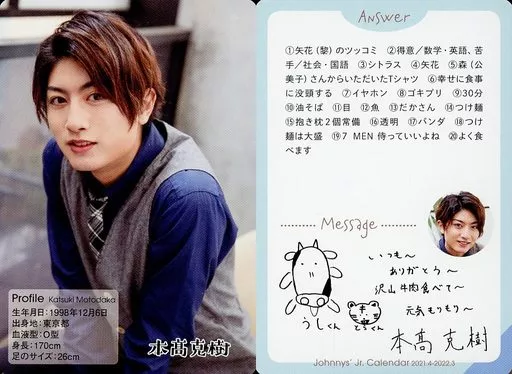 Profile Katsuki Motodaka
生年月日:1998年12月6日
出身地:東京都
血液型:O型
身長:170cm
足のサイズ:26cm
本髙克樹
Answer
①矢花(黎)のツッコミ ②得意/数学・英語、苦
手/社会・国語 ③シトラス ④矢花 ⑤森(公
美子)さんからいただいたTシャツ ⑥幸せに食事
に没頭する ⑦イヤホン ⑧ゴキブリ ⑨30分
⑩油そば ⑪目 ⑫魚 ⑬だかさん ⑭つけ麺
⑮抱き枕2個常備 ⑯透明 ⑰パンダ ⑱つけ
麺は大盛 ⑲7 MEN 侍っていいよね ⑳よく食
べます
Message
いつも〜
ありがとう〜
沢山牛肉食べて〜
元気もりもり〜
うしくん
とらくん
本髙克樹
Johnnys' Jr. Calendar 2021.4-2022.3